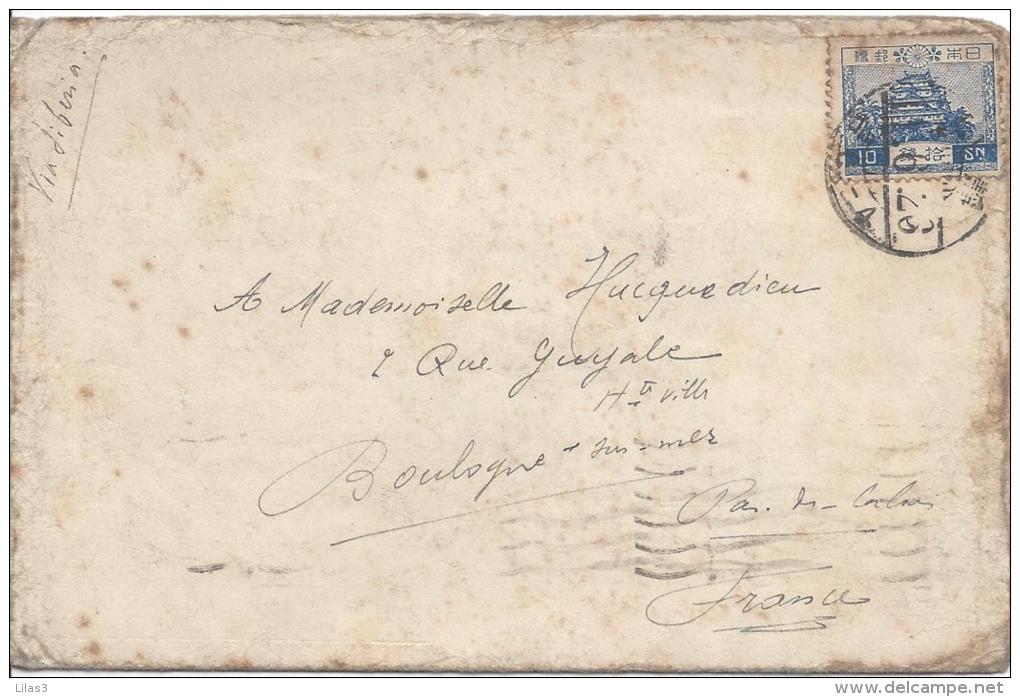 Via Siberia.
日本郵便
10 拾銭 SN
A Mademoiselle Hucquedieu
2 Rue Guyale
Hte ville
Boulogne-sur-mer
Pas-de-Calais
France
Lilas3
www.delcampe.net